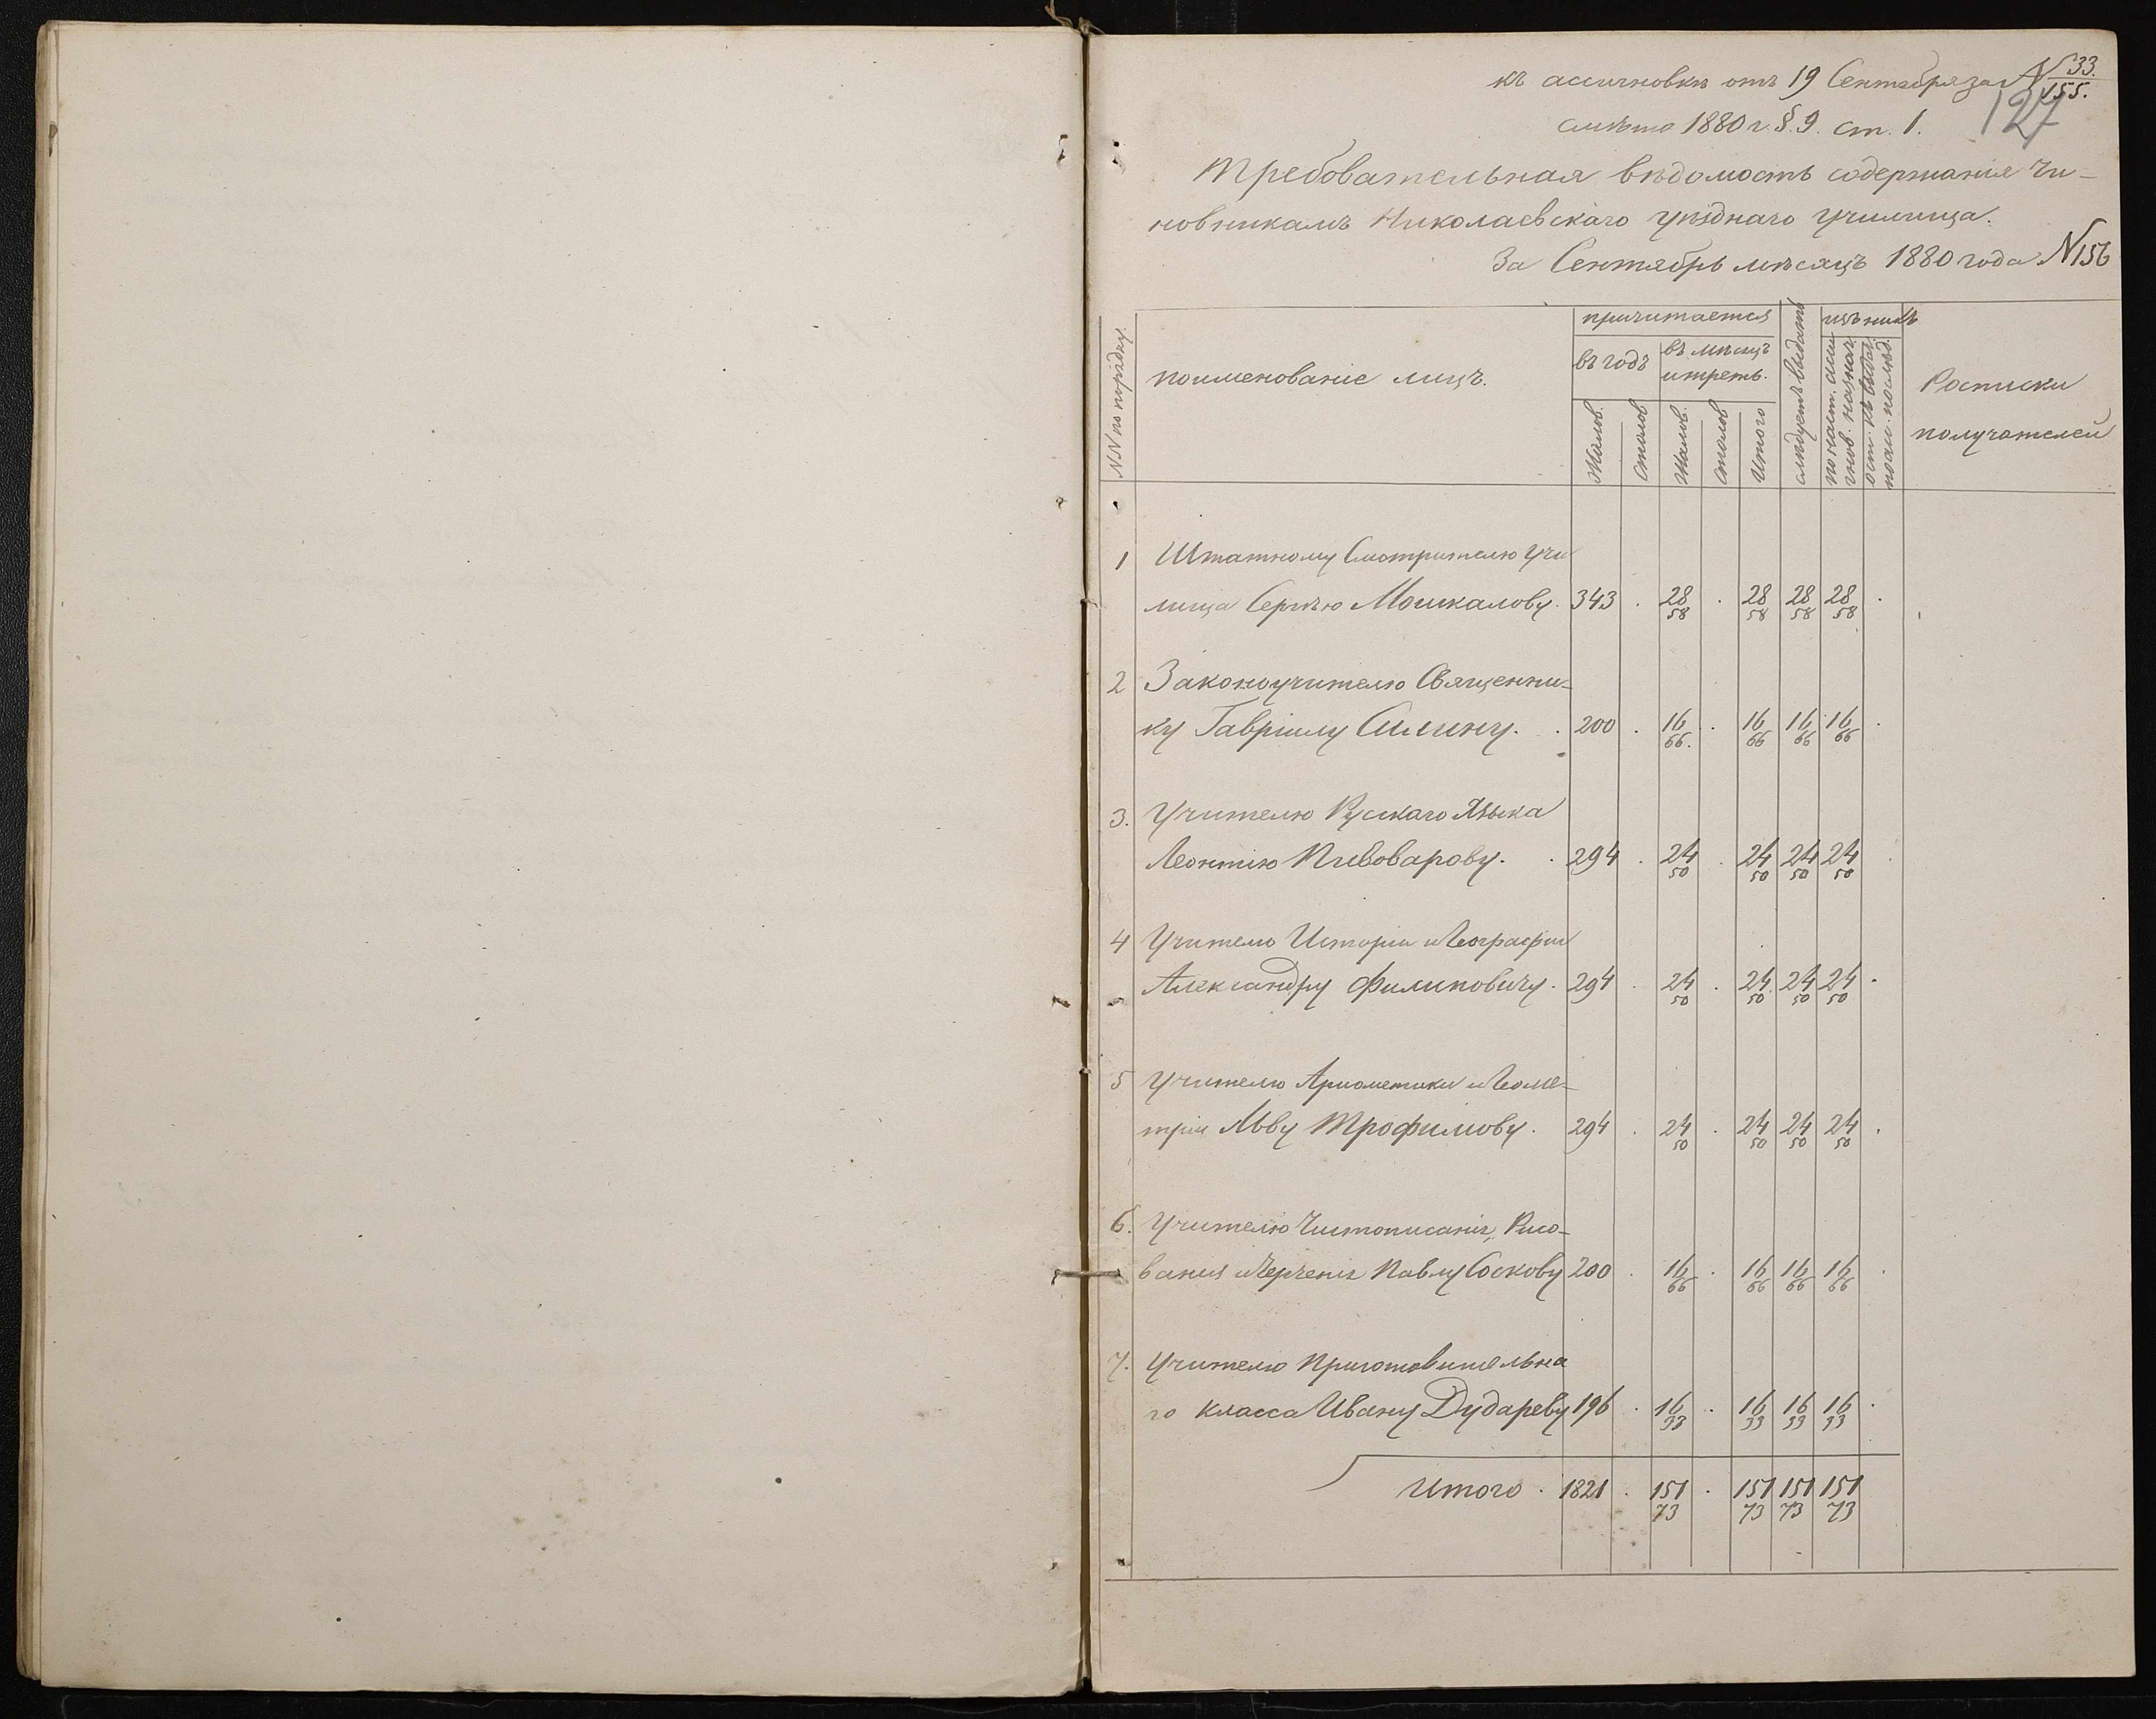 къ ассигновкѣ отъ 19 Сентября за N 33.
155.
127
смѣта 1880 г. §. 9. ст. 1.
Требовательная вѣдомость содержанія чи-
новникамъ Николаевскаго уѣзднаго училища.
За Сентябрь мѣсяцъ 1880 года N 156
NN по порядку.
поименованіе лицъ.
причитается
въ годъ
въ мѣсяцъ
и треть.
Жалов.
Столов
Жалов.
Столов
Итого
слѣдуетъ выдать
изъ нихъ
по наст. асси
гнов. назнач.
ост. къ выдач.
Росписки
получателей
1 Штатному Смотрителю Учи
лища Сергѣю Мошкалову. 343 . 28 58 . 28 58 28 58 28 58 .
2 Законоучителю Священни-
ку Гавріилу Силину. . 200 . 16 66. . 16 66 16 66 16 66 .
3. Учителю Русскаго Языка
Леонтію Пивоварову. . 294 . 24 50 . 24 50 24 50 24 50 .
4 Учителю Исторіи и Географіи
Александру Филиповичу. 294 . 24 50 . 24 50 24 50 24 50 .
5 Учителю Ариѳметики и Геоме-
тріи Льву Трофимову. 294 . 24 50 . 24 50 24 50 24 50 .
6. Учителю Чистописанія, Рисо-
ванія и Черченія Павлу Соскову 200 . 16 66 . 16 66 16 66 16 66 .
7. Учителю Приготовительна
го класса Ивану Дудареву 196 . 16 33 . 16 33 16 33 16 33 .
Итого . 1821 . 151 73 . 151 73 151 73 151 73